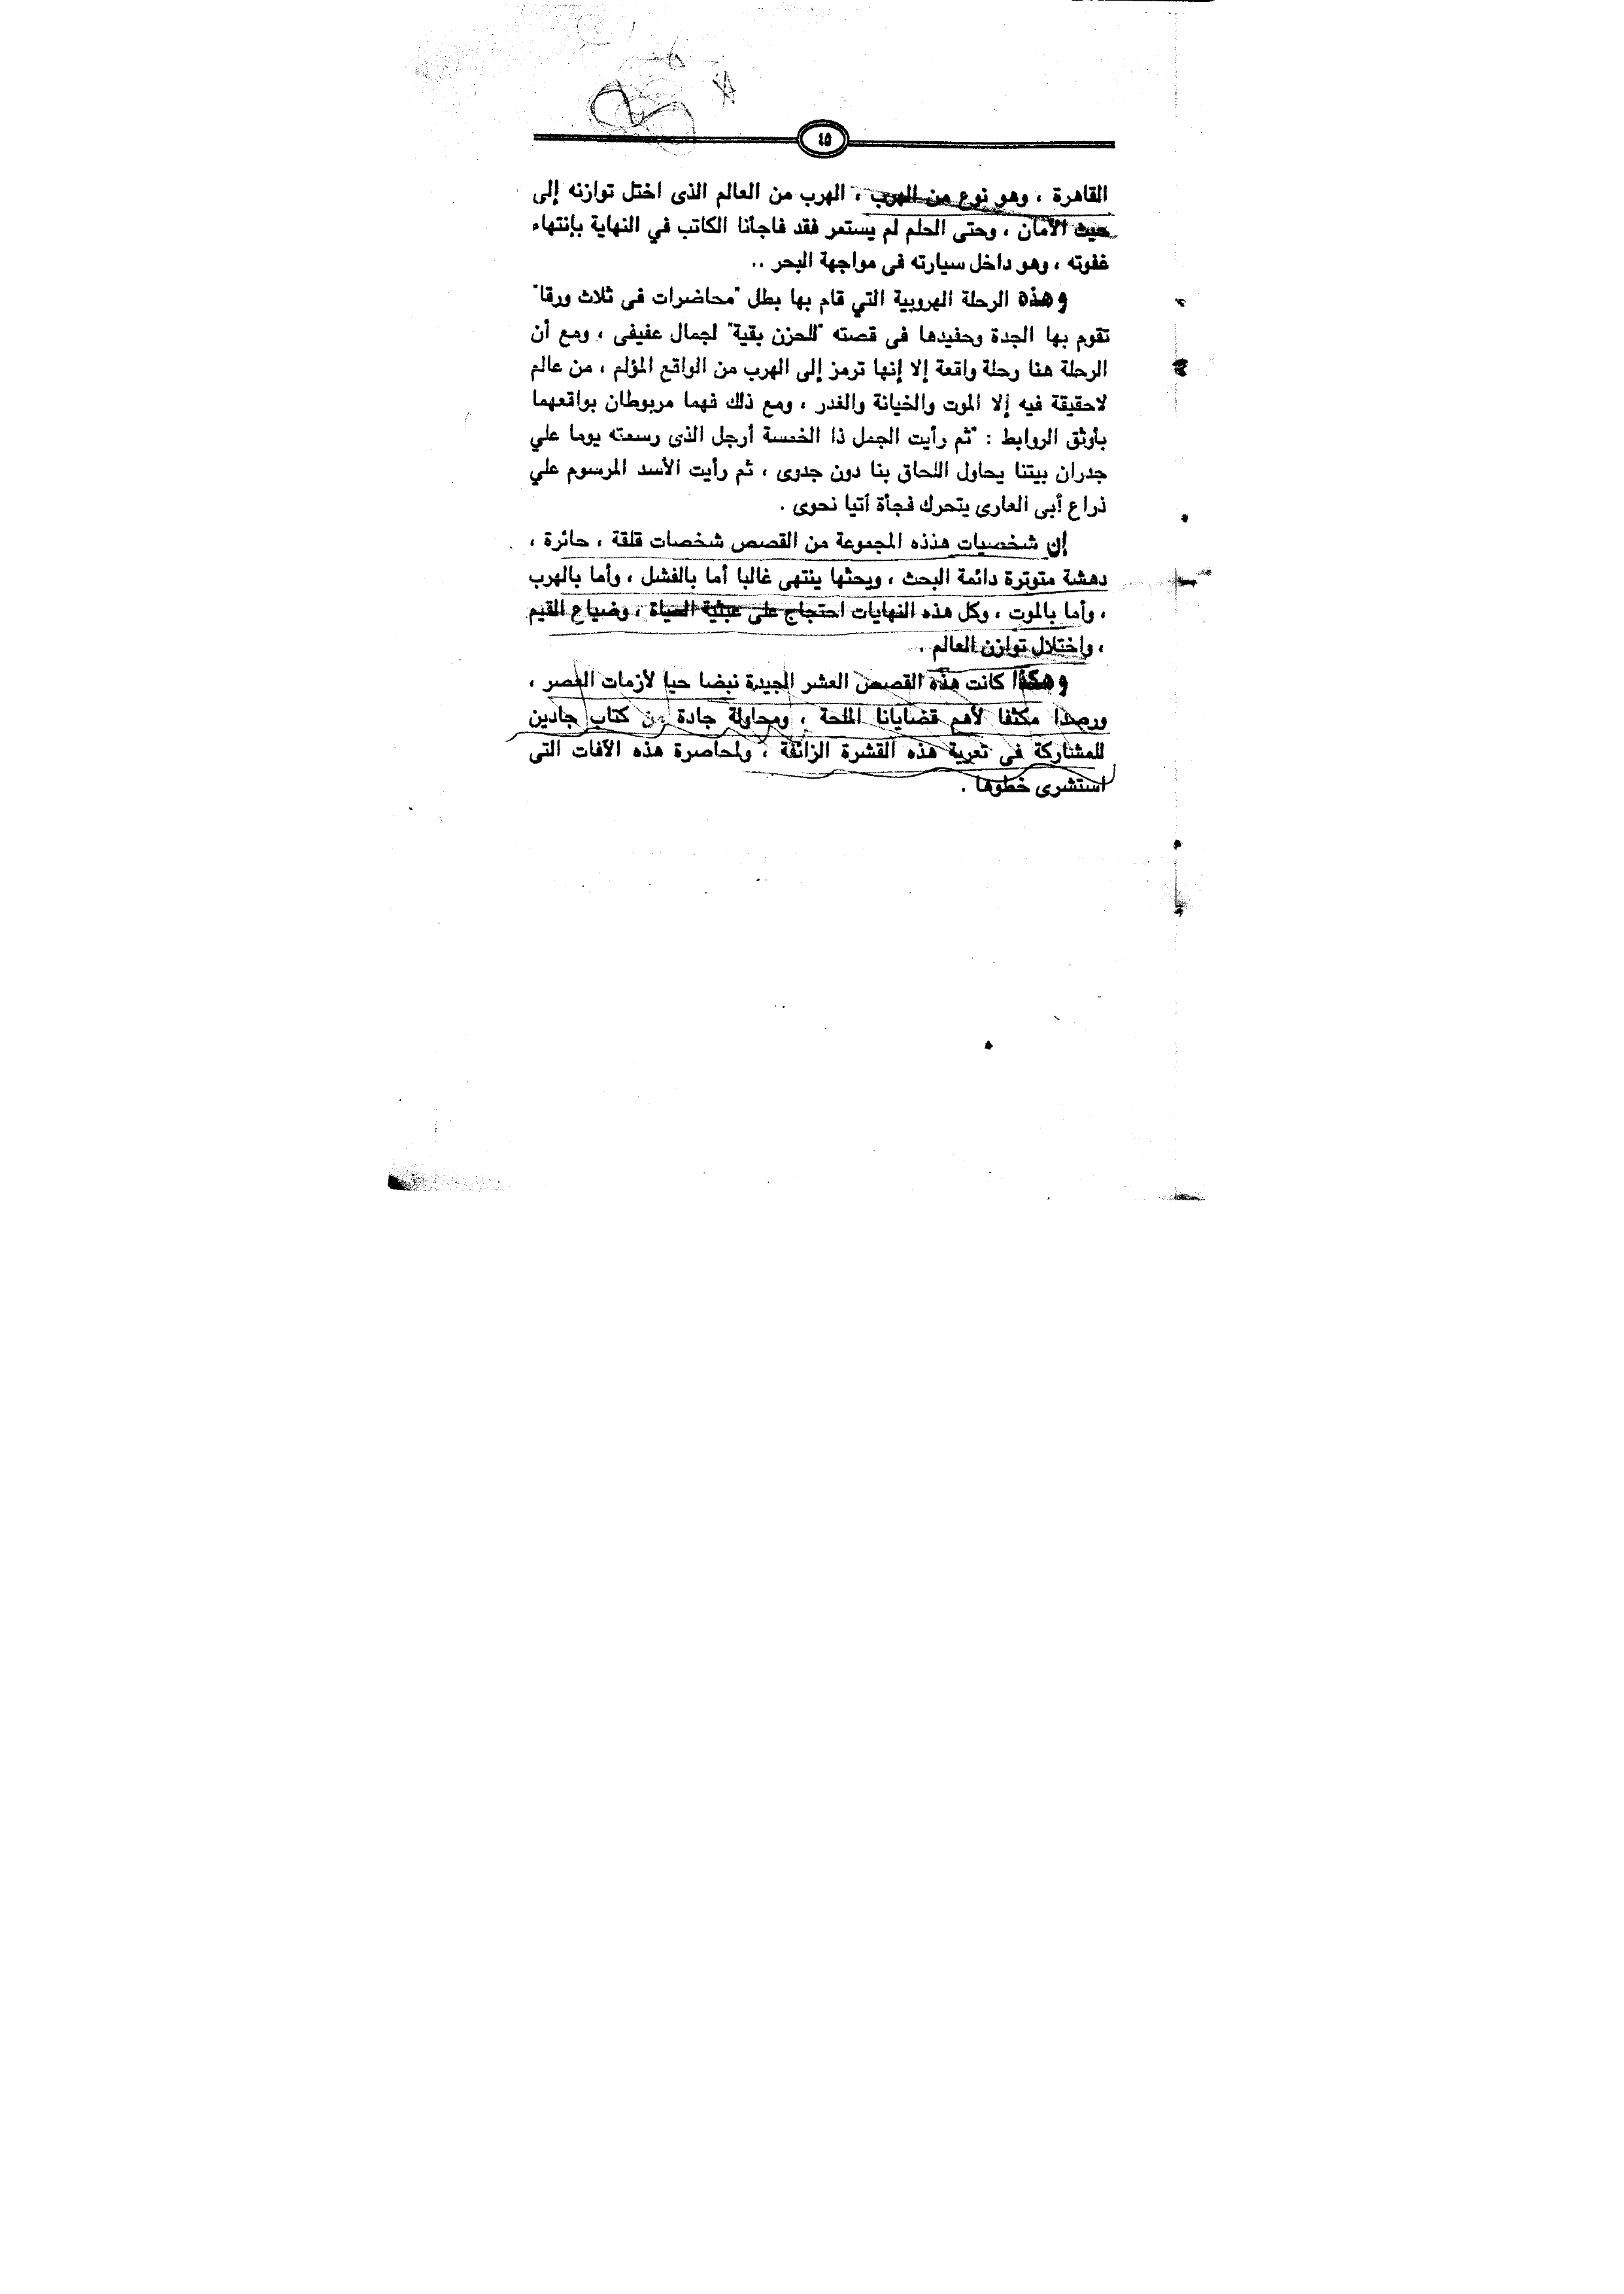 ٤٥
القاهرة ، وهو نوع من الهرب ، الهرب من العالم الذى اختل توازنه إلى
حيث الأمان ، وحتى الحلم لم يستمر فقد فاجأنا الكاتب في النهاية بإنتهاء
غفوته ، وهو داخل سيارته فى مواجهة البحر ..
وهذه الرحلة الهروبية التي قام بها بطل "محاضرات فى ثلاث ورقا"
تقوم بها الجدة وحفيدها فى قصته "للحزن بقية" لجمال عفيفى ، ومع أن
الرحلة هنا رحلة واقعة إلا إنها ترمز إلى الهرب من الواقع المؤلم ، من عالم
لاحقيقة فيه إلا الموت والخيانة والغدر ، ومع ذلك فهما مربوطان بواقعهما
بأوثق الروابط : "ثم رأيت الجمل ذا الخمسة أرجل الذى رسمته يوما علي
جدران بيتنا يحاول اللحاق بنا دون جدوى ، ثم رأيت الأسد المرسوم علي
ذراع أبى العارى يتحرك فجأة أتيا نحوى .
إن شخصيات هذذه المجموعة من القصص شخصات قلقة ، حائرة ،
دهشة متوترة دائمة البحث ، وبحثها ينتهى غالبا أما بالفشل ، وأما بالهرب
، وأما بالموت ، وكل هذه النهايات احتجاج على عبثية الحياة ، وضياع القيم
، واختلال توازن العالم .
وهكذا كانت هذه القصص العشر الجيدة نبضا حيا لأزمات العصر ،
ورصدا مكثفا لأهم قضايانا الملحة ، ومحاولة جادة من كتاب جادين
للمشاركة فى تعرية هذه القشرة الزائفة ، ولمحاصرة هذه الآفات التى
استشرى خطوها .